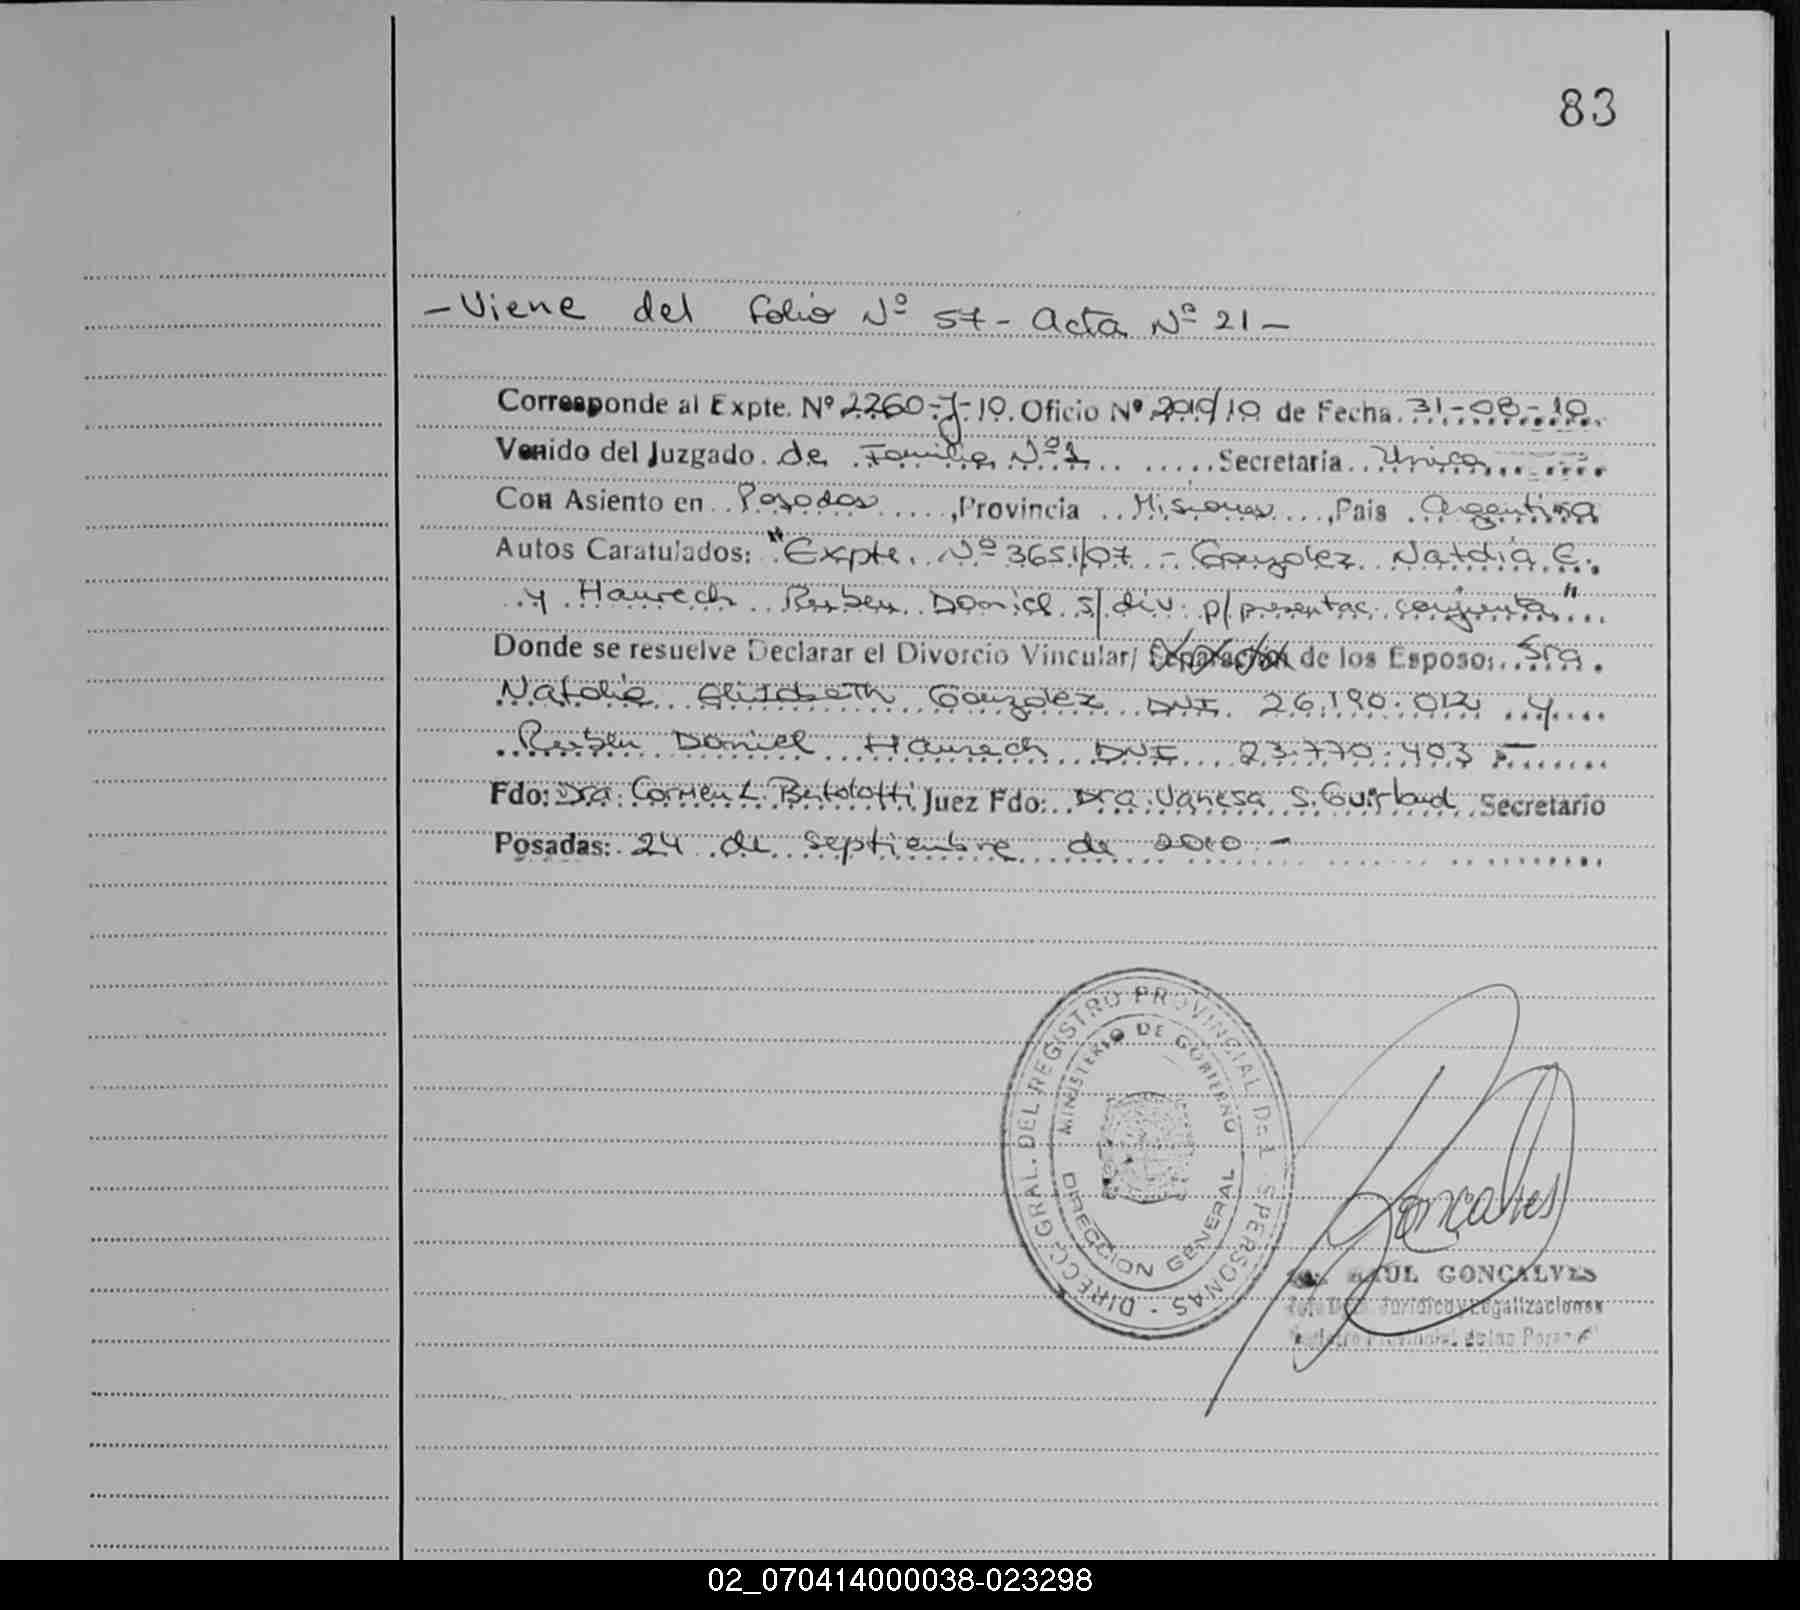 83
- Viene del folio Nº 57 - Acta Nº 21 -
Corresponde al Expte. Nº 2260-J-10. Oficio Nº /10 de Fecha 31-08-10.
Venido del Juzgado de Familia Nº 1 Secretaria Unica
Con Asiento en Posadas, Provincia Misiones, Pais Argentina
Autos Caratulados: "Expte. Nº 3651/07 - Gonzalez Natalia E.
y Haurech Ruben Daniel s/ div. p/ presentac. conjunta"
Donde se resuelve Declarar el Divorcio Vincular/ Separación de los Esposo: Sra.
Natalia Elisabeth Gonzalez DNI 26.190.012 y
Ruben Daniel Haurech DNI 23.770.403 -
Fdo: Dra. Carmen L. Bertolotti Juez Fdo: Dra. Vanesa S. Secretario
Posadas: 24 de septiembre de 2010 -
DIRECC. GRAL. DEL REGISTRO PROVINCIAL DE L S PERSONAS
MINISTERIO DE GOBIERNO
DIRECCION GENERAL
Goncalves
RAUL GONCALVES
Jefe Dpto. Jurídico y Legalizaciones
Registro Provincial de las Personas
02_070414000038-023298